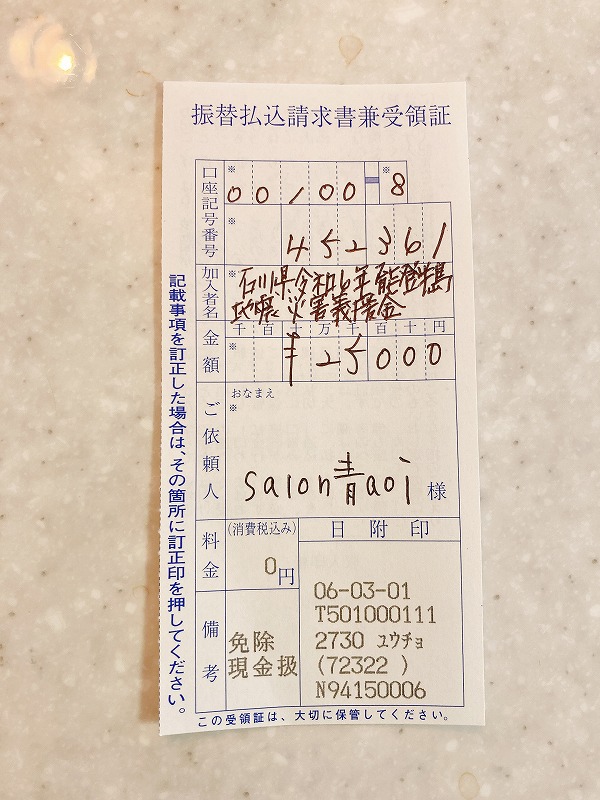 振替払込請求書兼受領証
口座記号番号
※ ※
00100-8
※
452361
加入者名
※
石川県令和6年能登半島
地震災害義援金
金額
千百十万千百十円
※
¥25000
ご依頼人
おなまえ
※
salon青aoi 様
料金
(消費税込み)
0円
備考
免除
現金扱
日附印
06-03-01
T501000111
2730 ユウチョ
(72322 )
N94150006
記載事項を訂正した場合は、その箇所に訂正印を押してください。
この受領証は、大切に保管してください。